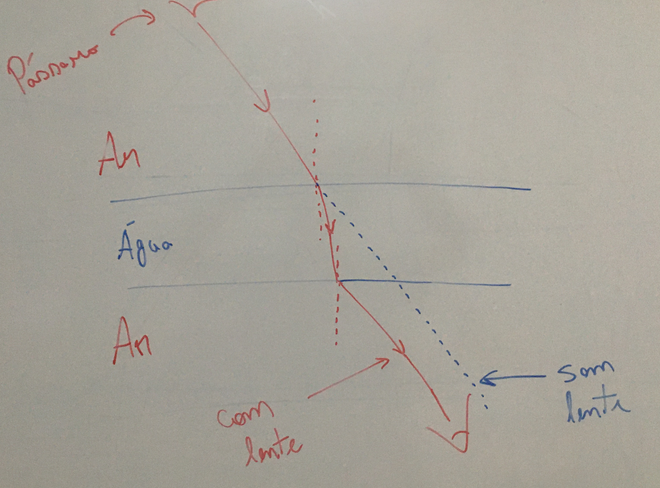 Pássaro
Ar
Água
Ar
com
lente
sem
lente